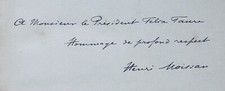 A Monsieur le Président Félix Faure
Hommage de profond respect
Henri Moissan